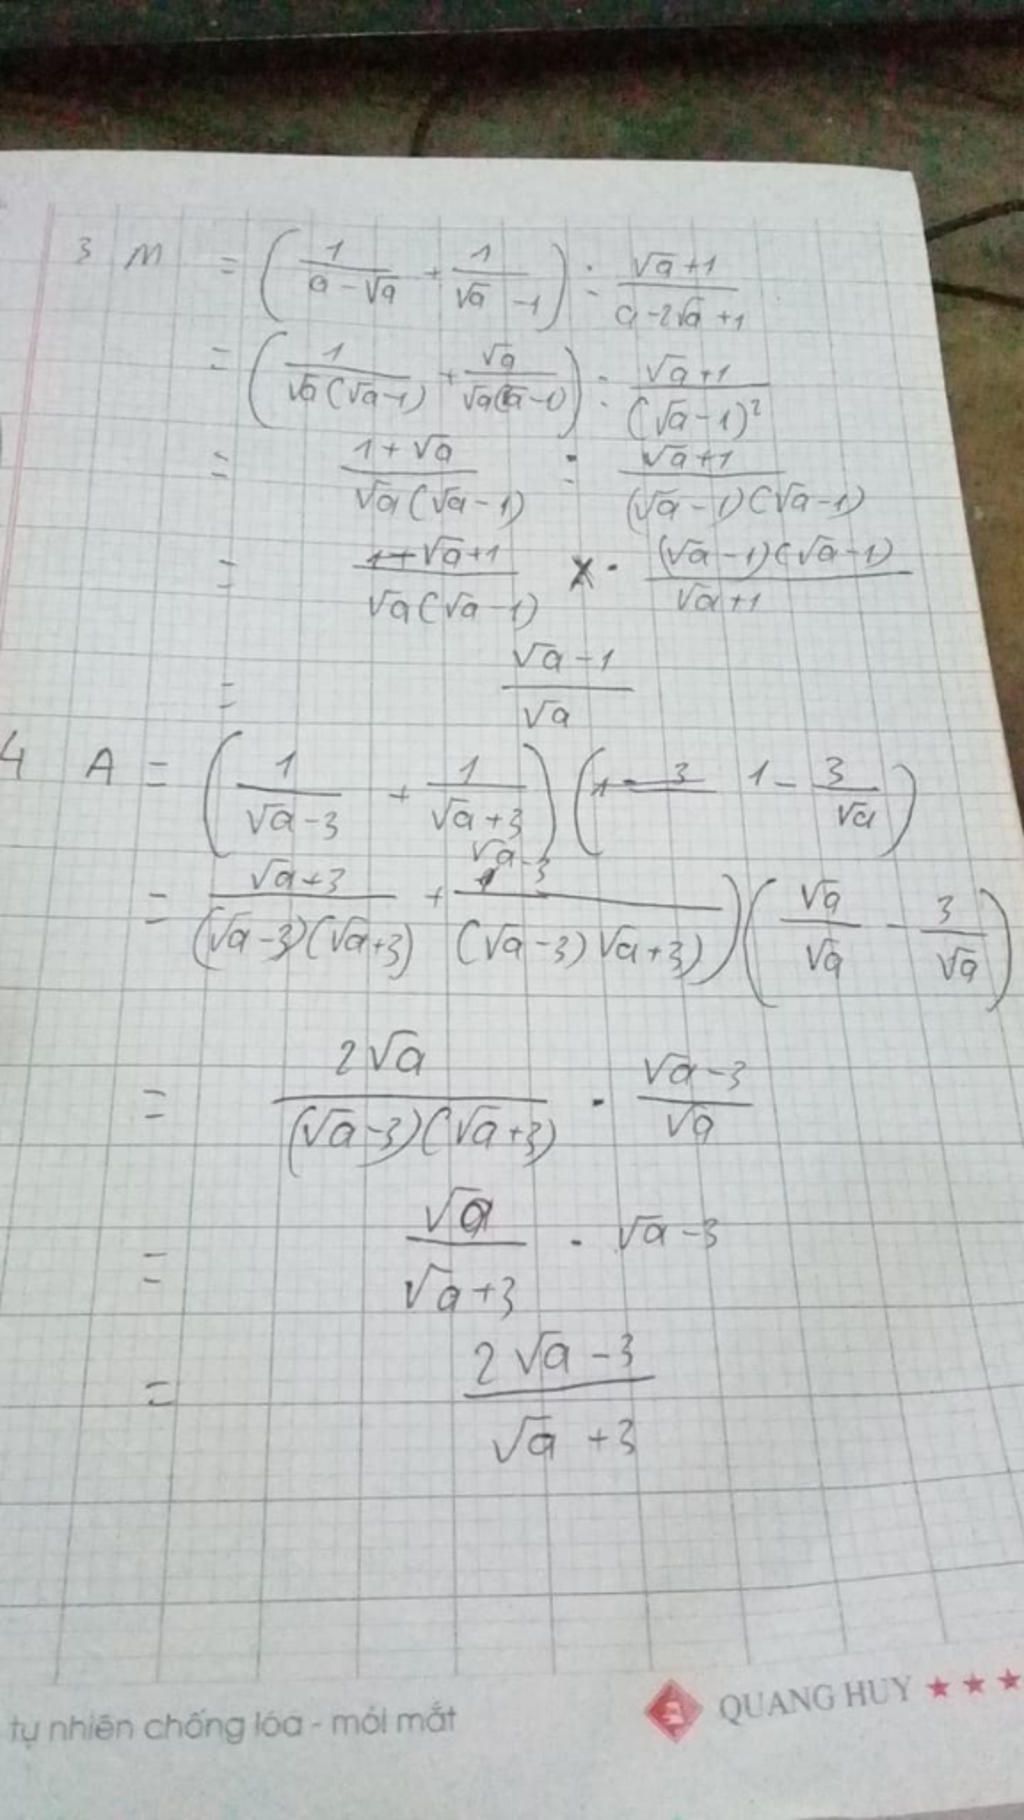 3 M = ( 1/(a - √a) + 1/(√a - 1) ) : (√a + 1)/(a - 2√a + 1)
= ( 1/(√a(√a - 1)) + √a/(√a(√a - 1)) ) : (√a + 1)/(√a - 1)²
= (1 + √a)/(√a(√a - 1)) : (√a + 1)/((√a - 1)(√a - 1))
= (√a + 1)/(√a(√a - 1)) · ((√a - 1)(√a - 1))/(√a + 1)
= (√a - 1)/√a
4 A = ( 1/(√a - 3) + 1/(√a + 3) ) ( 1 - 3/√a )
= (√a + 3)/((√a - 3)(√a + 3)) + (√a - 3)/((√a - 3) √a + 3) ) ) ( √a/√a - 3/√a )
= 2√a/((√a - 3)(√a + 3)) · (√a - 3)/√a
= √a/(√a + 3) · √a - 3
= (2√a - 3)/(√a + 3)
tự nhiên chống lóa - mỏi mắt
QUANG HUY ★ ★ ★